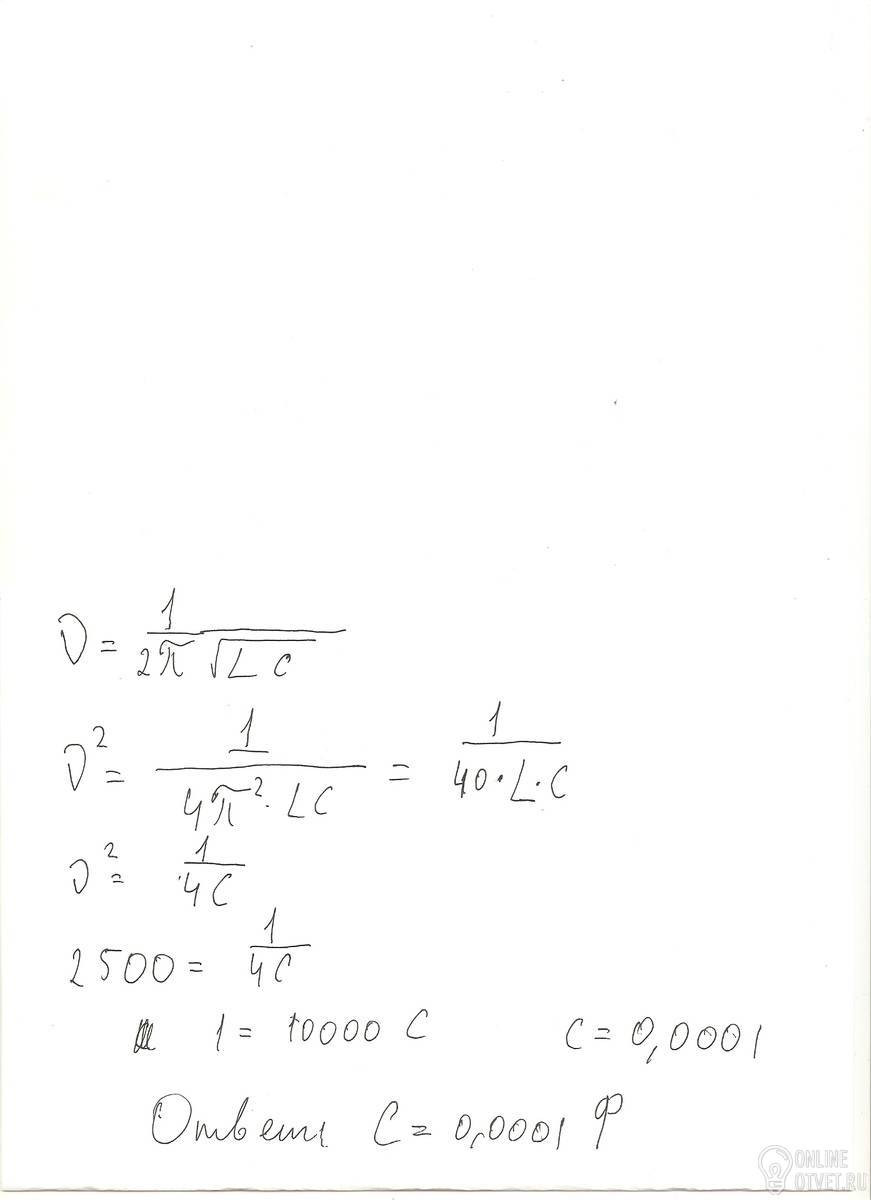 ν = 1 / (2π √LC)
ν² = 1 / (4π² · LC) = 1 / (40 · L · C)
ν² = 1 / 4C
2500 = 1 / 4C
1 = 10000 C C = 0,0001
Ответ: C = 0,0001 Ф
ONLINE
OTVET.RU